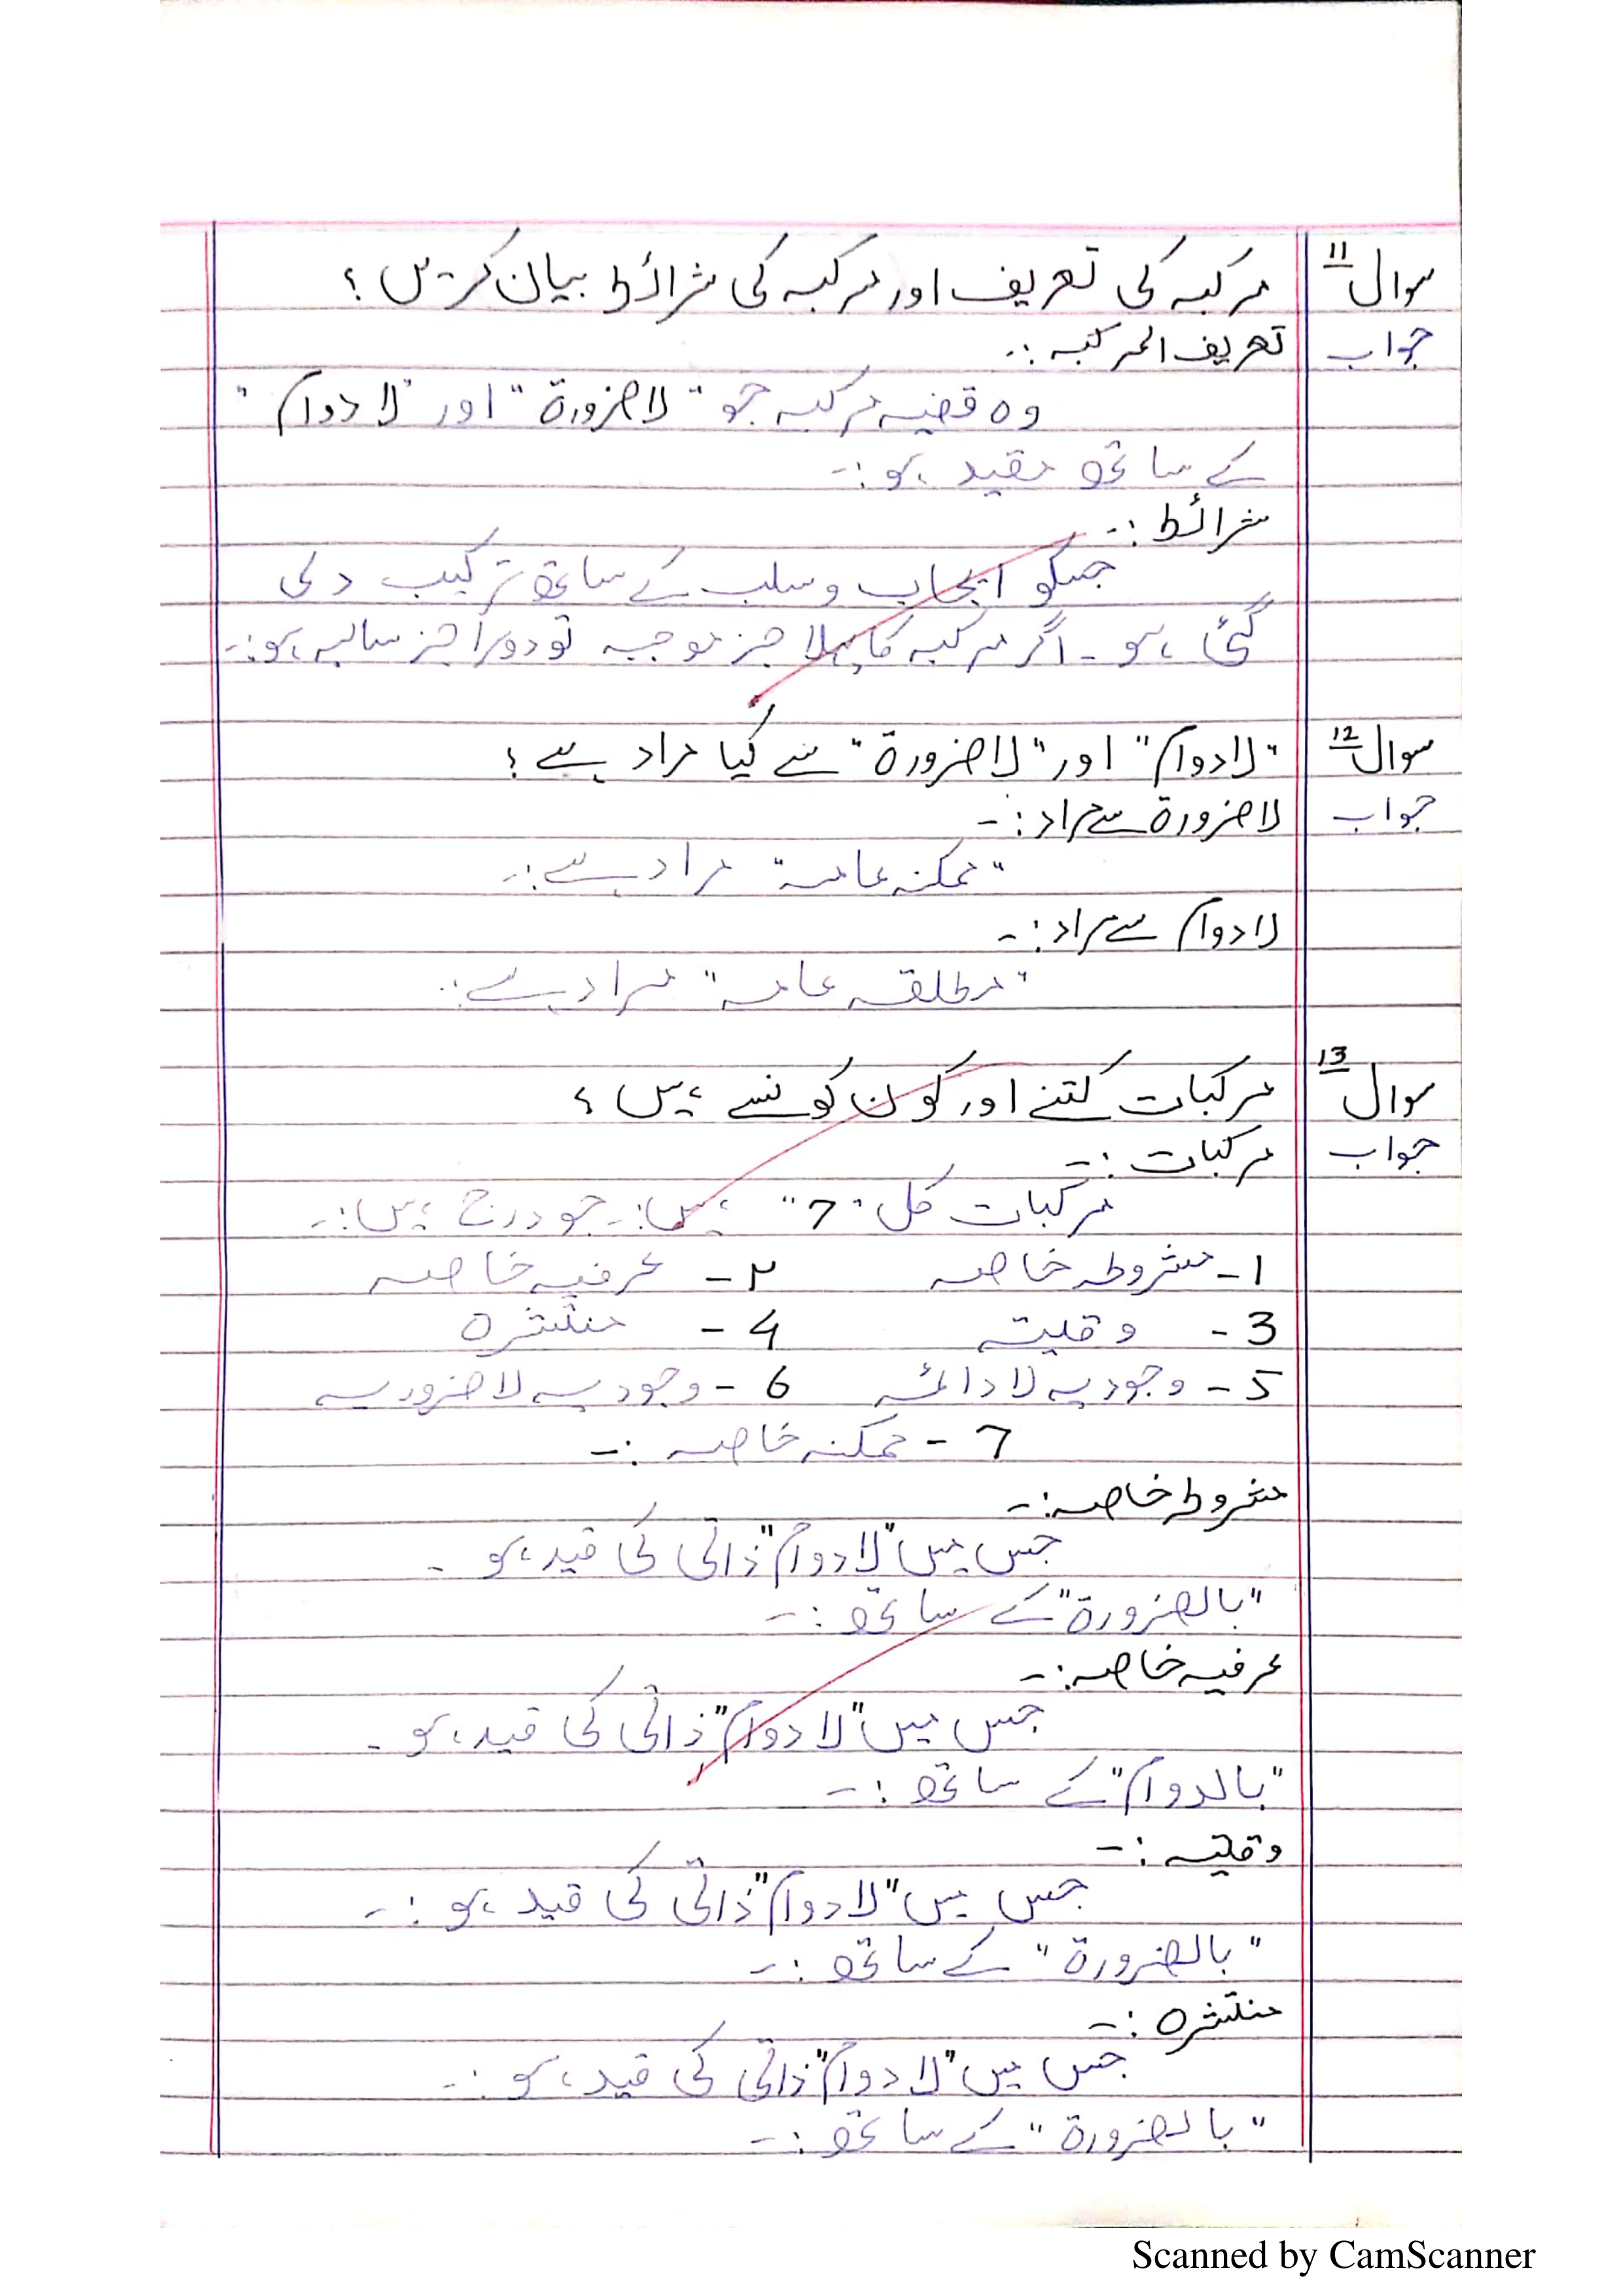 سوال 11 مرکبہ کی تعریف اور مرکبہ کی شرائط بیان کریں؟
جواب تعریف المرکبہ :-
وہ قضیہ مرکبہ جو "لاضرورۃ" اور "لادوام"
کے ساتھ مقید ہو :-
شرائط :-
جسکو ایجاب و سلب کے ساتھ ترکیب دی
گئی ہو - اگر مرکبہ کا پہلا جز موجبہ تو دوسرا جز سالبہ ہو :-
سوال 12 "لادوام" اور "لاضرورۃ" سے کیا مراد ہے؟
جواب لاضرورۃ سے مراد :-
"ممکنہ عامہ" مراد ہے :-
لادوام سے مراد :-
"مطلقہ عامہ" مراد ہے :-
سوال 13 مرکبات کتنے اور کون کونسے ہیں؟
جواب مرکبات :-
مرکبات کل "7" ہیں :- جو درج ہیں :-
1- مشروطہ خاصہ ۲- عرفیہ خاصہ
3- وقتیہ 4- منتشرہ
5- وجودیہ لادائمہ 6- وجودیہ لاضروریہ
7- ممکنہ خاصہ :-
مشروطہ خاصہ :-
جس میں "لادوام" ذاتی کی قید ہو -
"بالضرورۃ" کے ساتھ :-
عرفیہ خاصہ :-
جس میں "لادوام" ذاتی کی قید ہو -
"بالدوام" کے ساتھ :-
وقتیہ :-
جس میں "لادوام" ذاتی کی قید ہو :-
"بالضرورۃ" کے ساتھ :-
منتشرہ :-
جس میں "لادوام" ذاتی کی قید ہو :-
"بالضرورۃ" کے ساتھ :-
Scanned by CamScanner